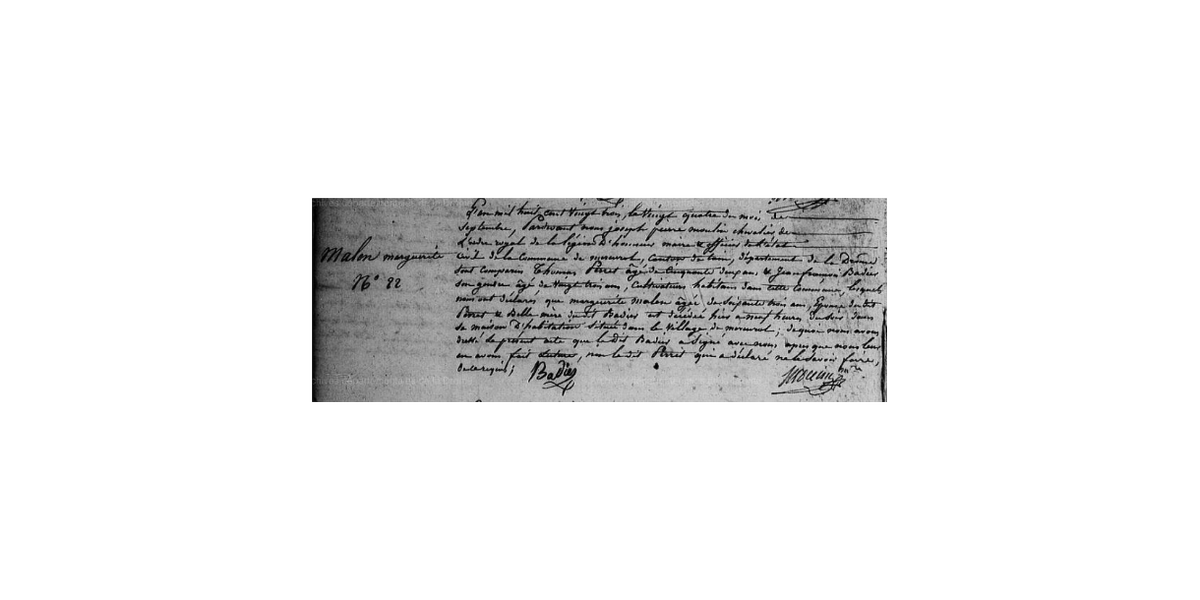 L'an mil huit cent vingt trois, le vingt quatre du mois de
Septembre, Pardevant nous joseph pierre moulin chevalier de
L'ordre royal de la légion d'honneur maire & officier de l'état
Malen marguerite
civil de la Commune de mercurol, Canton de tain, département de la Drome
N° 22
sont comparus Thomas Perret âgé de Cinquante ans, & Jean françois Badier
son gendre âgé de vingt trois ans, Cultivateurs habitans dans cette Commune, lesquels
nous ont déclarés que marguerite malen âgée de soixante trois ans, Epouse du dit
Perret & Belle mère du dit Badier est décédée hier a neuf heures du soir dans
sa maison d'habitation située dans le village de mercurol; de quoi nous avons
dressé le present acte que le dit Badier a signé avec nous, apres que nous leur
en avons fait lecture, non le dit Perret qui a déclaré ne le savoir faire,
de ce requis;
Badier
moulin mre